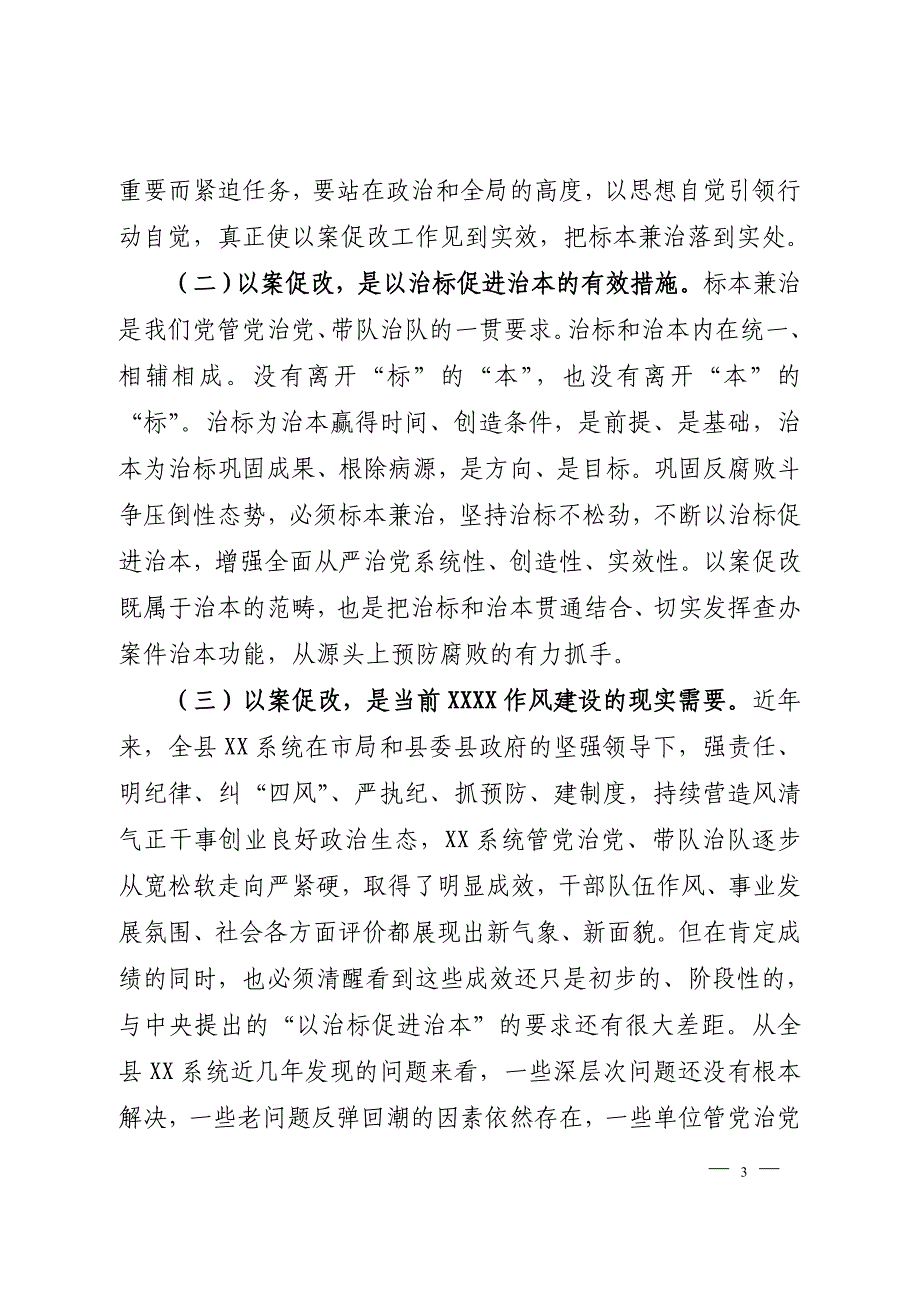 重要而紧迫任务，要站在政治和全局的高度，以思想自觉引领行
动自觉，真正使以案促改工作见到实效，把标本兼治落到实处。
（二）以案促改，是以治标促进治本的有效措施。标本兼治
是我们党管党治党、带队治队的一贯要求。治标和治本内在统一、
相辅相成。没有离开“标”的“本”，也没有离开“本”的
“标”。治标为治本赢得时间、创造条件，是前提、是基础，治
本为治标巩固成果、根除病源，是方向、是目标。巩固反腐败斗
争压倒性态势，必须标本兼治，坚持治标不松劲，不断以治标促
进治本，增强全面从严治党系统性、创造性、实效性。以案促改
既属于治本的范畴，也是把治标和治本贯通结合、切实发挥查办
案件治本功能，从源头上预防腐败的有力抓手。
（三）以案促改，是当前 XXXX 作风建设的现实需要。近年
来，全县 XX 系统在市局和县委县政府的坚强领导下，强责任、
明纪律、纠“四风”、严执纪、抓预防、建制度，持续营造风清
气正干事创业良好政治生态，XX 系统管党治党、带队治队逐步
从宽松软走向严紧硬，取得了明显成效，干部队伍作风、事业发
展氛围、社会各方面评价都展现出新气象、新面貌。但在肯定成
绩的同时，也必须清醒看到这些成效还只是初步的、阶段性的，
与中央提出的“以治标促进治本”的要求还有很大差距。从全
县 XX 系统近几年发现的问题来看，一些深层次问题还没有根本
解决，一些老问题反弹回潮的因素依然存在，一些单位管党治党
— 3 —